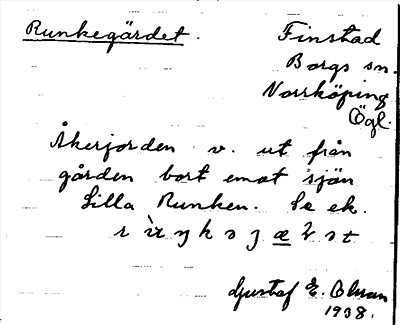 Runkegärdet.
Finstad
Borgs sn.
Norrköping
Ögl.
Åkerjorden v. ut från
gården bort emot sjön
Lilla Runken. Se ek.
Gustaf E. Olsson
1938.